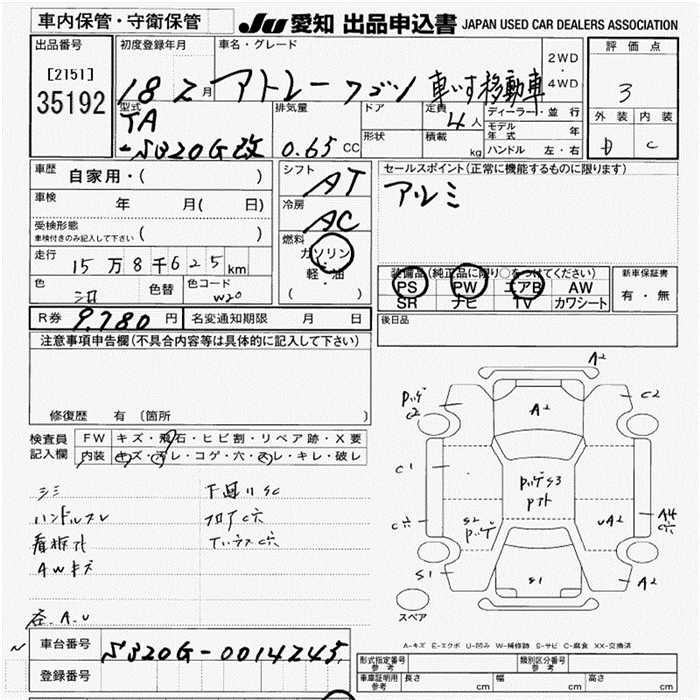 車内保管・守衛保管 JU 愛知 出品申込書 JAPAN USED CAR DEALERS ASSOCIATION
出品番号 初度登録年月 車名・グレード 評価点
[2151]
35192
18 2月 アトレーワゴン 車いす移動車 2WD・4WD
3
型式 排気量 ドア 定員 4人 ディーラー・並行
TA
-S320G改 0.65 CC 形状 積載 kg モデル年式 年 ハンドル 左・右
外装 内装
D C
車歴 自家用・( )
シフト AT
セールスポイント(正常に機能するものに限ります)
アルミ
車検 年 月( 日)
冷房 AC
受検形態
車検付きのみ記入して下さい ( )
燃料 ガソリン・軽・油 ( )
走行 15万8千625km
装備品(純正品に限り○をつけてください) 新車保証書
PS PW エアB AW
SR ナビ TV カワシート 有・無
色 色替 色コード W20
R券 9,780 円 名変通知期限 月 日
後日品
注意事項申告欄(不具合内容等は具体的に記入して下さい)
修復歴 有 〔箇所 〕
検査員記入欄 FW キズ・飛石・ヒビ割・リペア跡・X要
内装 キズ・ヨレ・コゲ・穴・スレ・キレ・破レ
シミ 下廻りSC
ハンドルスレ フロアC穴
AWキズ
A2
C2
A2
C2
C1
S2
UA2
A4
C穴
C穴
S1
S1
A2
スペア
A-キズ E-エクボ U-凹み W-補修跡 S-サビ C-腐食 XX-交換済
車台番号 S320G-0014245
登録番号
形式指定番号 参考 類別区分番号 参考
車庫証明用 参考 長さ cm 幅 cm 高さ cm